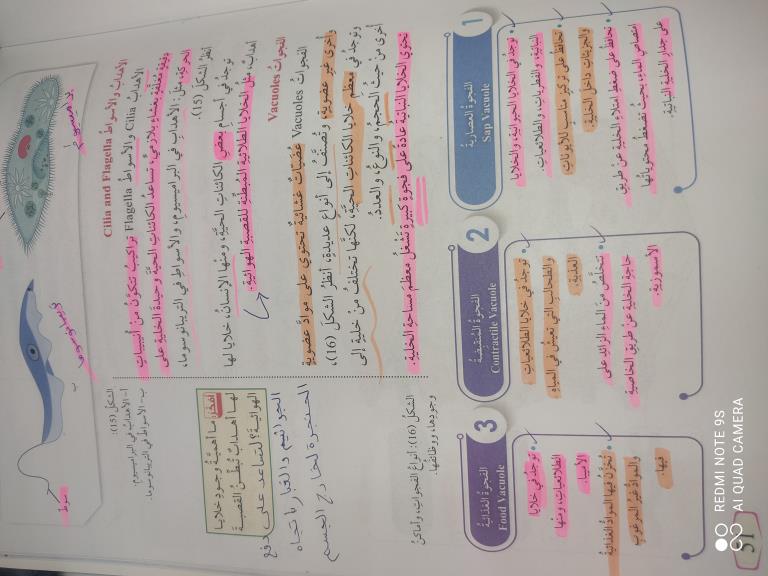 براميسيوم
تريبانوسوما
سوط
ب
الشكل (15):
أ- الأهداب في البراميسيوم.
ب- الأسواط في التريبانوسوما.
الأهداب والأسواط Cilia and Flagella
الأهداب Cilia والأسواط Flagella تراكيب تتكون من أنيبيبات
دقيقة مغلفة بغشاء بلازمي، تساعد الكائنات الحية وحيدة الخلية على
الحركة، مثل: الأهداب في البراميسيوم، والأسواط في التريبانوسوما،
أنظر الشكل (15).
توجد في أجسام بعض الكائنات الحية، ومنها الإنسان، خلايا لها
أهداب، مثل الخلايا الطلائية المبطنة للقصبة الهوائية.
أفكر: ما أهمية وجود خلايا
لها أهداب تبطن القصبة
الهوائية؟ لتساعد على دفع
الجراثيم والغبار باتجاه
الحنجرة لخارج الجسم
الفجوات Vacuoles
الفجوات Vacuoles عضيات غشائية تحتوي على مواد عضوية
وأخرى غير عضوية، وتصنف إلى أنواع عديدة، أنظر الشكل (16)،
وتوجد في معظم خلايا الكائنات الحية، لكنها تختلف من خلية إلى
أخرى من حيث الحجم، والنوع، والعدد.
تحتوي الخلايا النباتية عادة على فجوة كبيرة تشغل معظم مساحة الخلية.
الشكل (16): أنواع الفجوات، وأماكن
وجودها، ووظائفها.
1
الفجوة العصارية
Sap Vacuole
توجد في الخلايا الحيوانية، والخلايا
النباتية، والفطريات، والطلائعيات.
تحافظ على تركيز مناسب للأيونات
والجزيئات داخل الخلية.
تحافظ على ضغط امتلاء الخلية عن طريق
امتصاص الماء، بحيث تضغط محتوياتها
على جدار الخلية النباتية.
2
الفجوة المنقبضة
Contractile Vacuole
توجد في خلايا الطلائعيات
والطحالب التي تعيش في المياه
العذبة.
تتخلص من الماء الزائد على
حاجة الخلية عن طريق الخاصية
الأسموزية.
3
الفجوة الغذائية
Food Vacuole
توجد في خلايا
الطلائعيات، ومنها
الأميبا.
تخزن فيها المواد الغذائية
والمواد غير المرغوب
فيها.
51
REDMI NOTE 9S
AI QUAD CAMERA